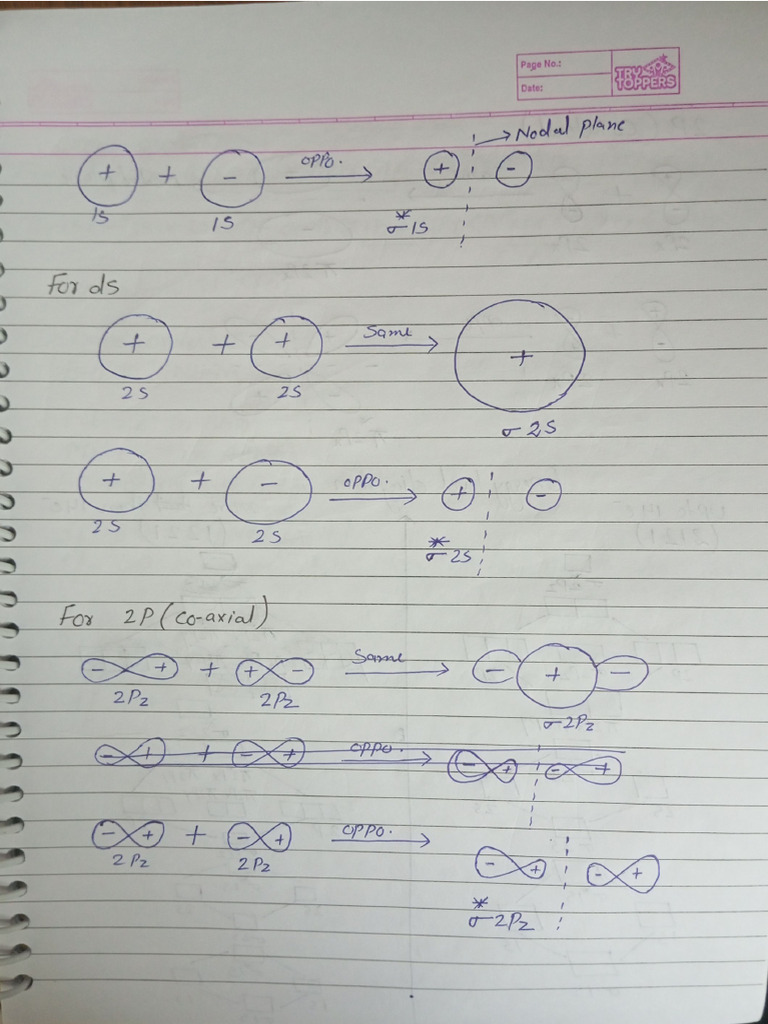 Page No.:
Date:
TRY TOPPERS
→ Nodal plane
+ + - OPPO. → + -
1S 1S σ*1S
For dS
+ + + Same → +
2S 2S σ2S
+ + - OPPO. → + -
2S 2S σ*2S
For 2P (co-axial)
- + + + - Same → - + -
2Pz 2Pz σ2Pz
- + + - + OPPO. → - + - +
- + + - + OPPO. → - + - +
2Pz 2Pz σ*2Pz